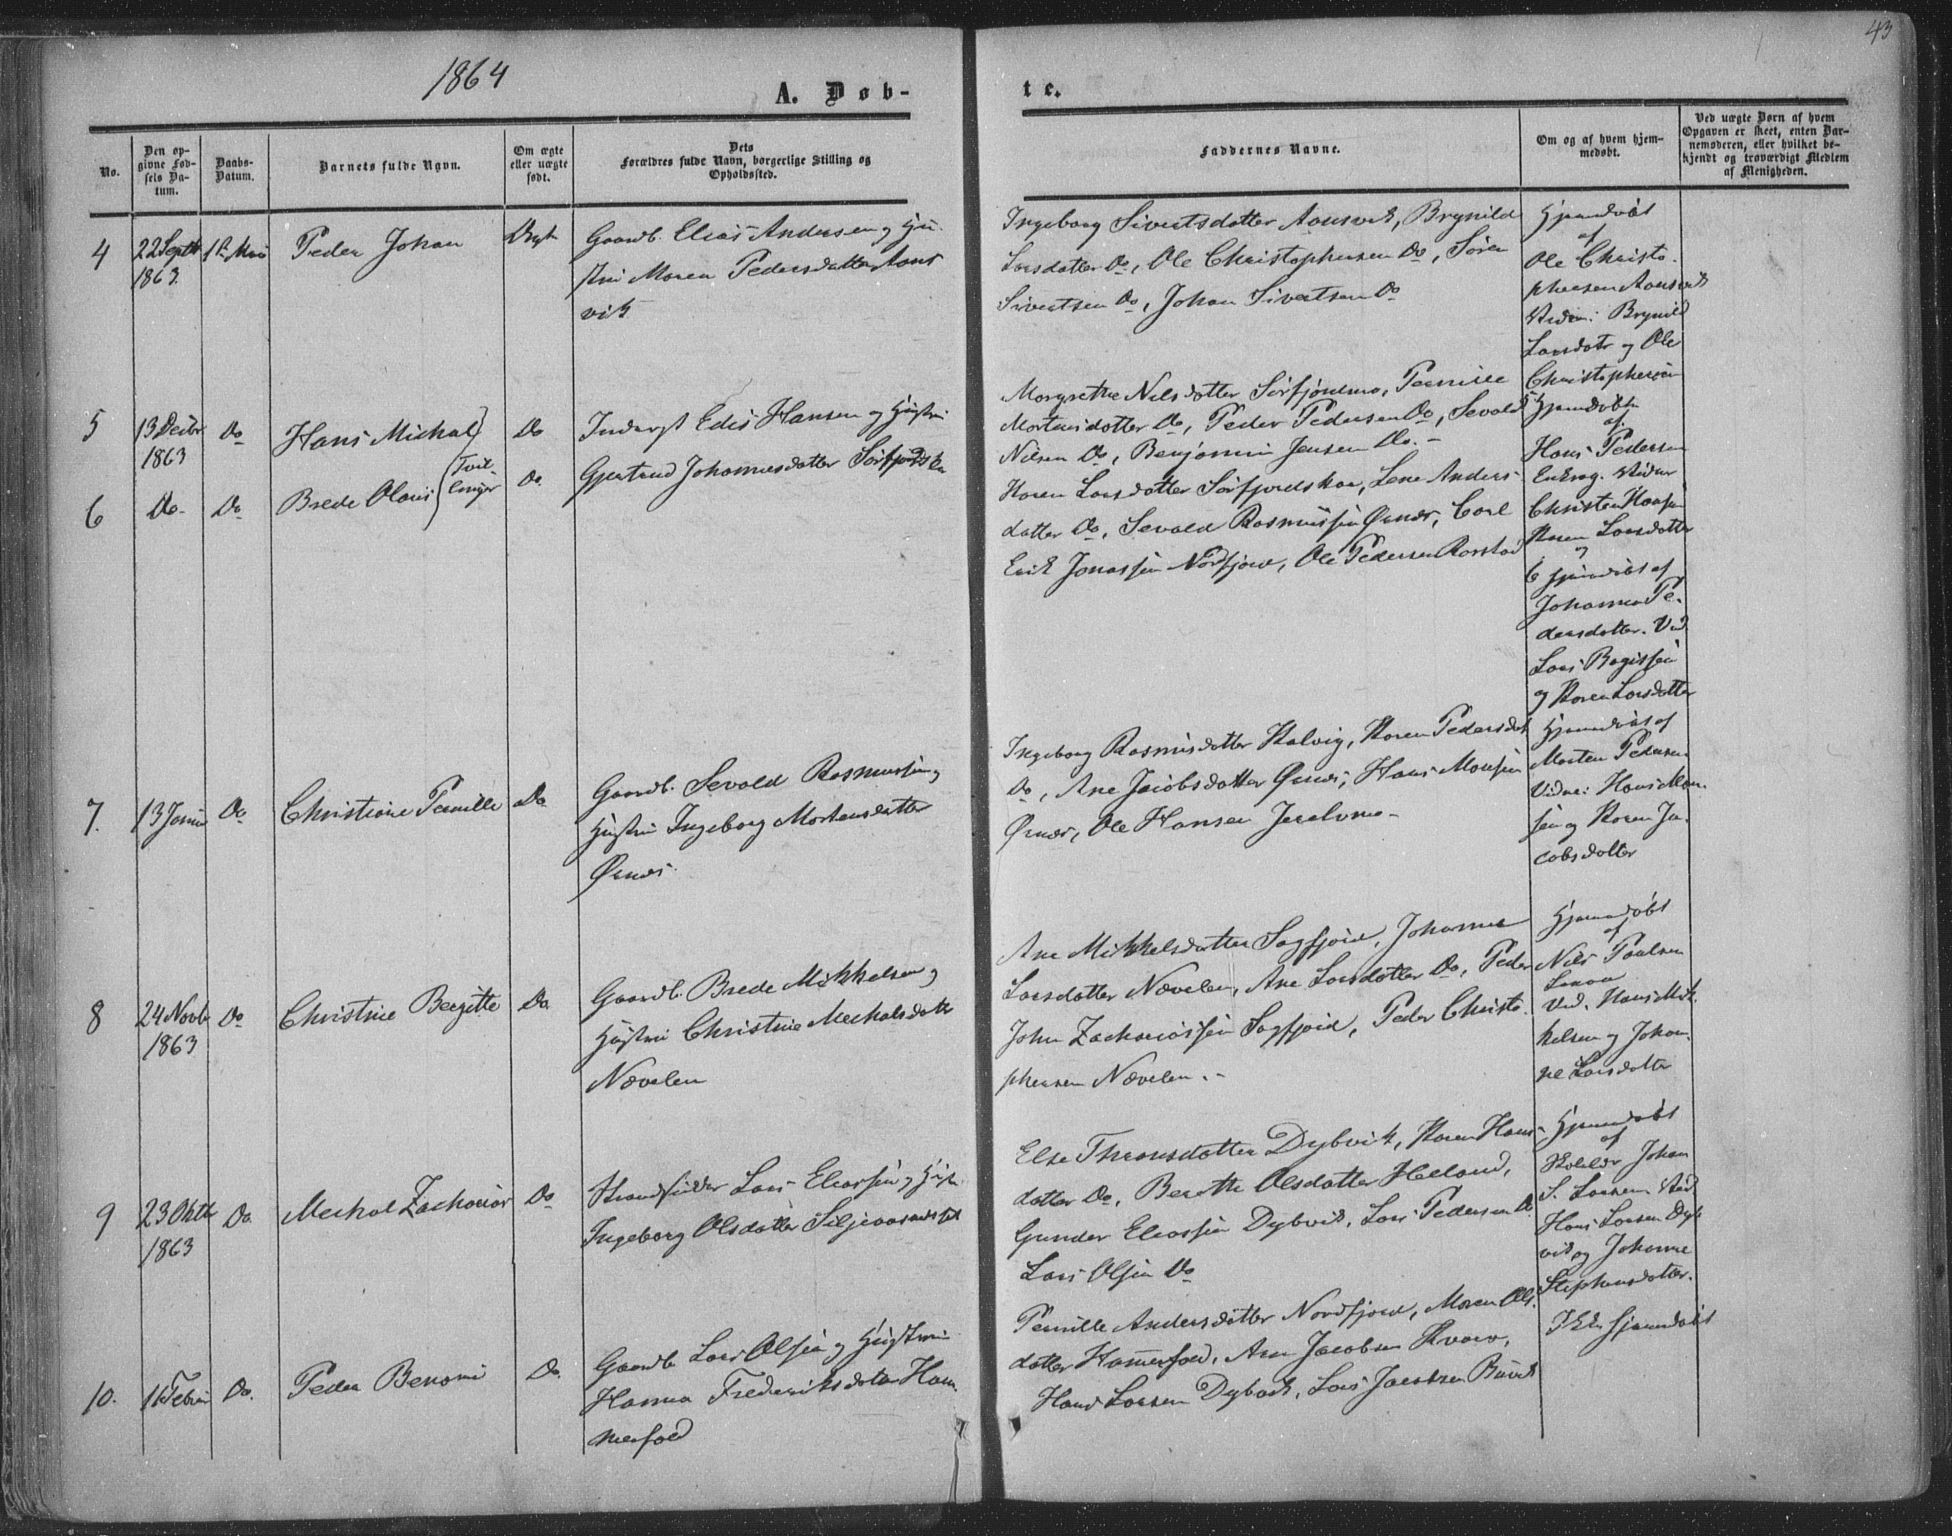 43
1864
A. Døb-
te.
No.
Den op-
givne Fød-
sels Da-
tum.
Daabs-
Datum.
Barnets fulde Navn.
Om ægte
eller uægte
født.
Dets
Forældres fulde Navn, borgerlige Stilling og
Opholdssted.
Faddernes Navne.
Om og af hvem hjem-
medøbt.
Ved uægte Børn af hvem
Opgaven er skeet, enten Bar-
nemoderen, eller hvilket be-
kjendt og troværdigt Medlem
af Menigheden.
4
22 Septb
1863
1st Mai
Peder Johan
Gaardb. Elias Andersen og Hu-
stru Maren Pedersdatter Aans
vik
Ingeborg Sivertsdatter Aansvik, Brynild
Larsdatter Do, Ole Christophersen Do, Sören
Sivertsen Do, Johan Sivertsen Do
Hjemdöbt
af
Ole Christo-
phersen Aansvik
Vidner: Brynild
Larsdatr og Ole
Christophersen
5
13 Decbr
1863
Do
Hans Michal
Tvil-
linger
Do
Inderst Edis Hansen og Hustru
Gjertrud Johannesdatter
Margrethe Nilsdatter Sörfjordmo, Pernille
Mortensdatter Do, Peder Pedersen Do, Sevald
Nilsen Do, Benjamin Jensen Do. -
5 Hjemdöbt
af
Hans Pedersen
Vidner
Christen Hansen
Karen Larsdatter
6
Do
Do
Brede Olaus
Do
Karen Larsdatter Sörfjordskar, Lene Anders-
datter Do, Sevald Rasmussen Ørnes, Carl
Erik Jonassen Nordfjord, Ole Pedersen Rørstad
6 Hjemdöbt af
Johanna Pe-
dersdatter. Vid.
Lars
og Karen Larsdatter
7.
13 Janu
Do
Christine Pernille
Do
Gaardb. Sevald Rasmussen og
Hustru Ingeborg Mortensdatter
Ørnes.
Ingeborg Rasmusdatter Kalvig, Karen Pedersdat
Do, Ane Jacobsdatter Ørnes, Hans Monsen
Ørnes, Ole Hansen
Hjemdöbt af
Morten Pedersen
Vidne: Hans Mon-
sen og Karen Ja-
cobsdatter
8
24 Novb
1863
Do
Christine Bergitte
Do.
Gaardb. Brede Mikkelsen og
Hustru Christine Mechalsdatter
Nævelen
Ane Mikkelsdatter Sagfjord, Johanna
Larsdatter Nævelen, Ane Larsdatter Do, Peder
John Zachariassen Sagfjord, Peder Christo-
phersen Nævelen. -
Hjemdöbt
af
Nils Paulsen
Vid. Hans Mik-
kelsen og Johan-
ne Larsdatter
9
23 Oktb
1863
Do.
Mechal Zacharias
Do
Strandsidder Lars Eliassen og Hustr.
Ingeborg Olsdatter
Else Thronsdatter Dybvik, Karen Hans-
datter Do, Berethe Olsdatter Helland,
Gunder Eliassen Dybvik, Lars Pedersen Do
Lars Olsen Do
Hjemdöbt
af
Johan
S. Larsen. Vid
Hans Larsen Dyb
vik og Johanne
Stephansdatter.
10.
Do.
Peder Benoni
Do.
Gaardb Lars Olsen og Hustru
Hanna Frederiksdatter Ham-
merfald
Pernille Andersdatter Nordfjord, Maren Ols-
datter Hammerfald, Ane Jacobsen Kvarv,
Hans Larsen Dybvik, Lars Jacobsen
Ikke hjemdöbt